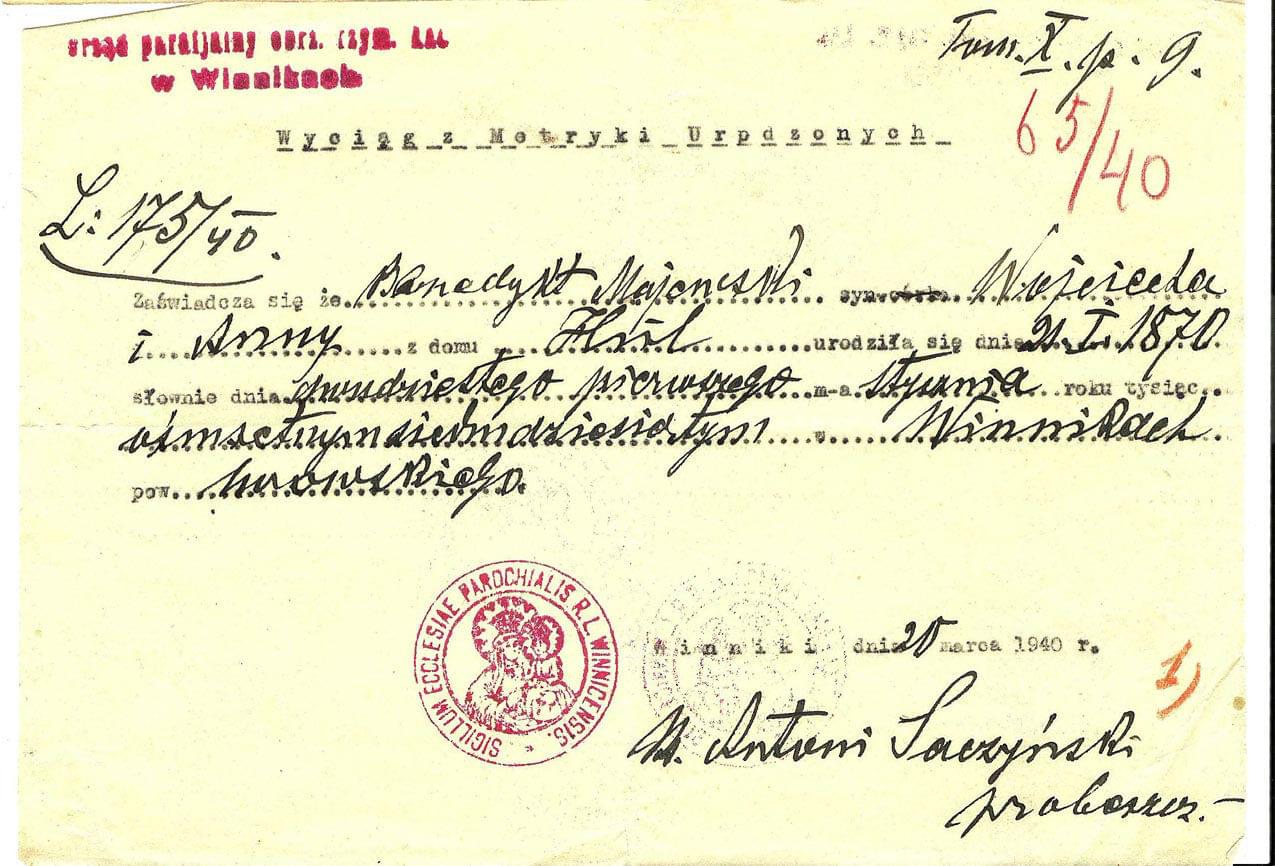 Urząd parafjalny obrz. rzym. kat.
w Winnikach
Tom. X. p. 9.
65/40
Wyciąg z Metryki Urpdzonych
L: 175/40.
Zaświadcza się że Benedykt Majewski syn-córka Wojciecha
i Anny z domu Hul urodziła się dnia 21. I. 1870
słownie dnia dwudziestego pierwszego m-a stycznia roku tysiąc
ośmsetnym siedmdziesiątym w Winnikach
pow. lwowskiego.
SIGILLUM ECCLESIAE PAROCHIALIS R. L. WINNICENSIS.
Winniki dnia 20 marca 1940 r.
1)
X. Antoni Saczyński
proboszcz.-